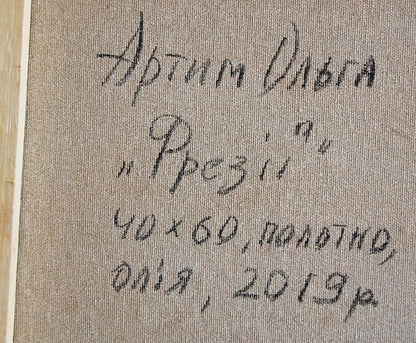 Артим Ольга
„Фрезії"
40×60, полотно,
олія, 2019р.